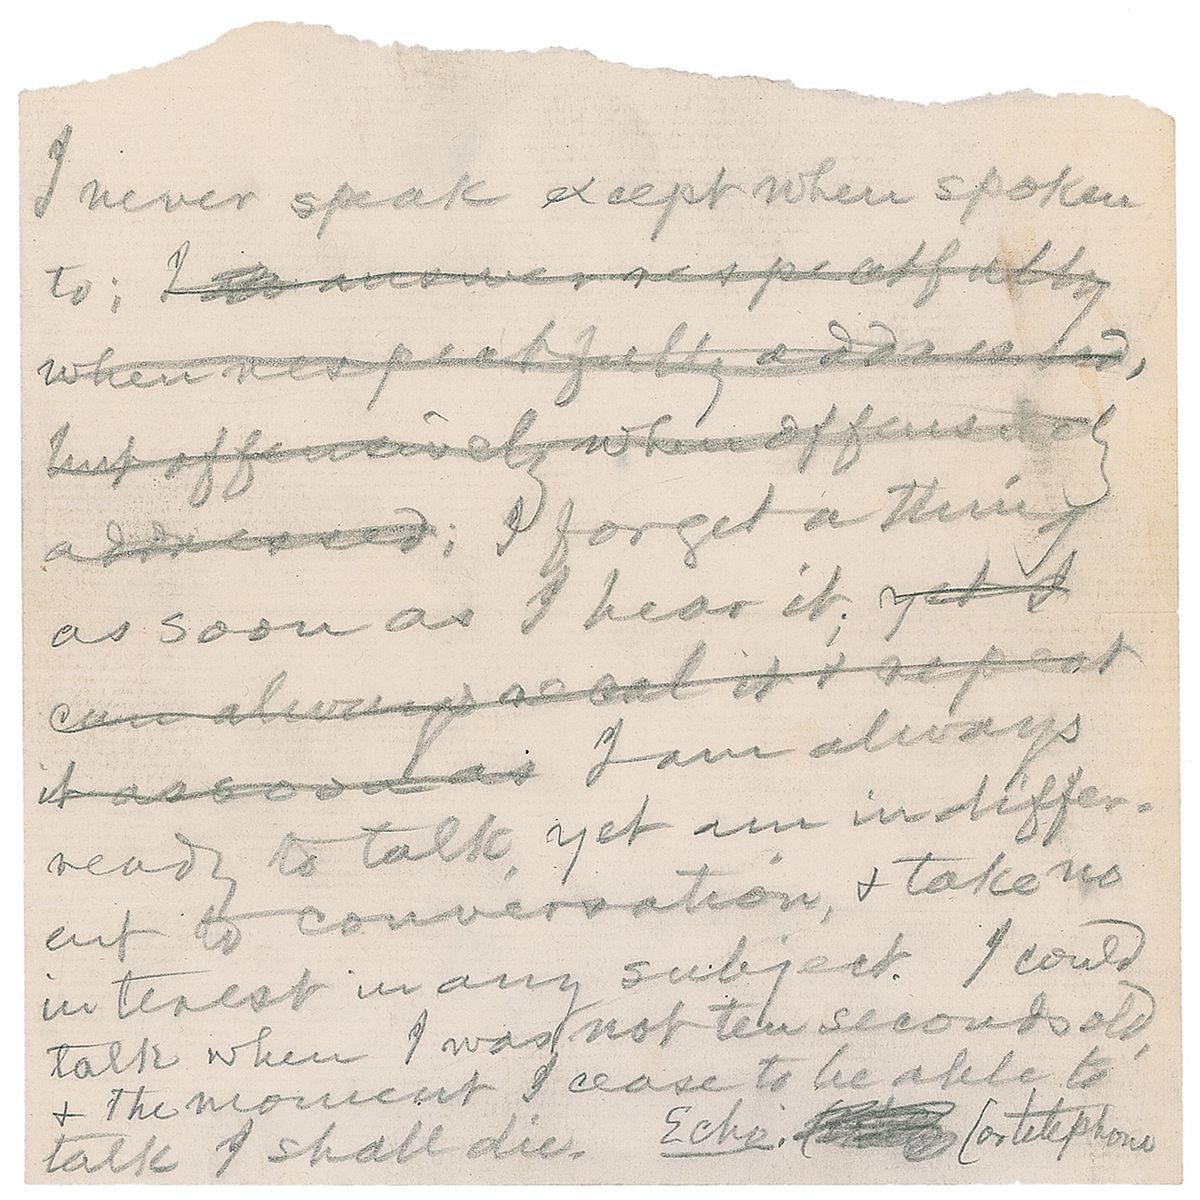 I never speak except when spoken
to; I answer respectfully
when respectfully addressed,
but offensively when offensively
addressed; I forget a thing
as soon as I hear it; yet I
can always recal it & repeat
it as soon as I am always
ready to talk, yet am indiffer-
ent to conversation, & take no
interest in any subject. I could
talk when I was not ten seconds old,
& the moment I cease to be able to
talk I shall die. Echo. (or telephone